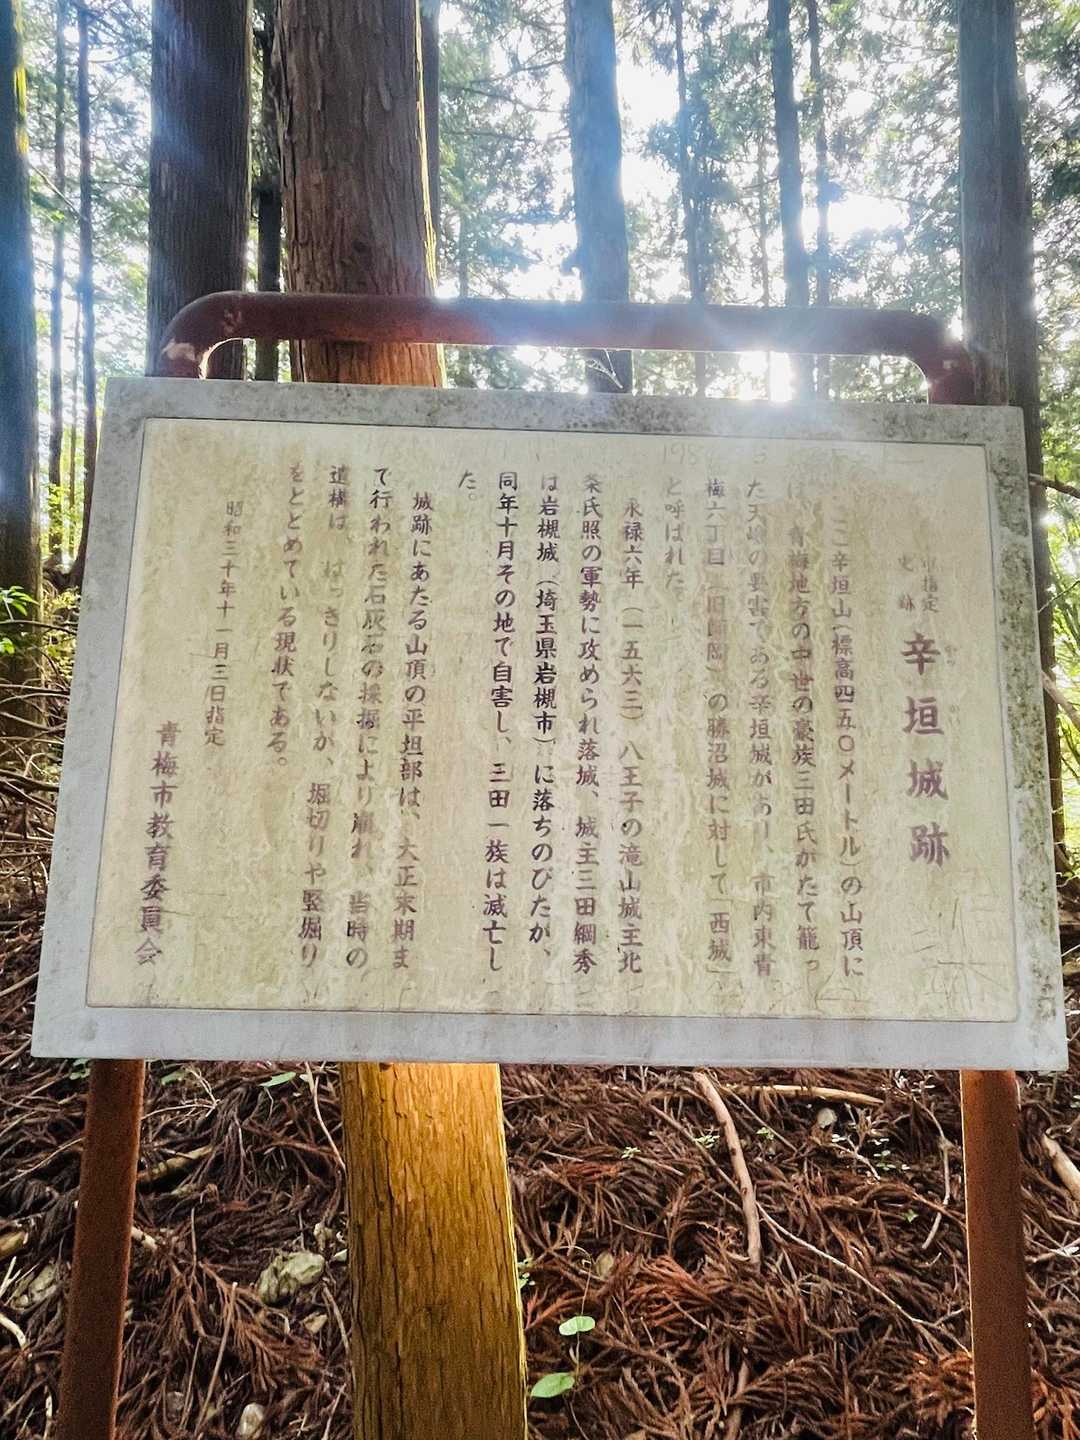 市指定
史跡
辛垣城跡
ここ辛垣山（標高四五〇メートル）の山頂に
は、青梅地方の中世の豪族三田氏がたて籠っ
た天嶮の要害である辛垣城があり、市内東青
梅六丁目（旧師岡）の勝沼城に対して「西城」
と呼ばれた。
永禄六年（一五六三）八王子の滝山城主北
条氏照の軍勢に攻められ落城、城主三田綱秀
は岩槻城（埼玉県岩槻市）に落ちのびたが、
同年十月その地で自害し、三田一族は滅亡し
た。
城跡にあたる山頂の平坦部は、大正末期ま
で行われた石灰石の採掘により崩れ、当時の
遺構は、はっきりしないが、堀切りや竪堀り
をとどめている現状である。
昭和三十年十一月三日指定
青梅市教育委員会